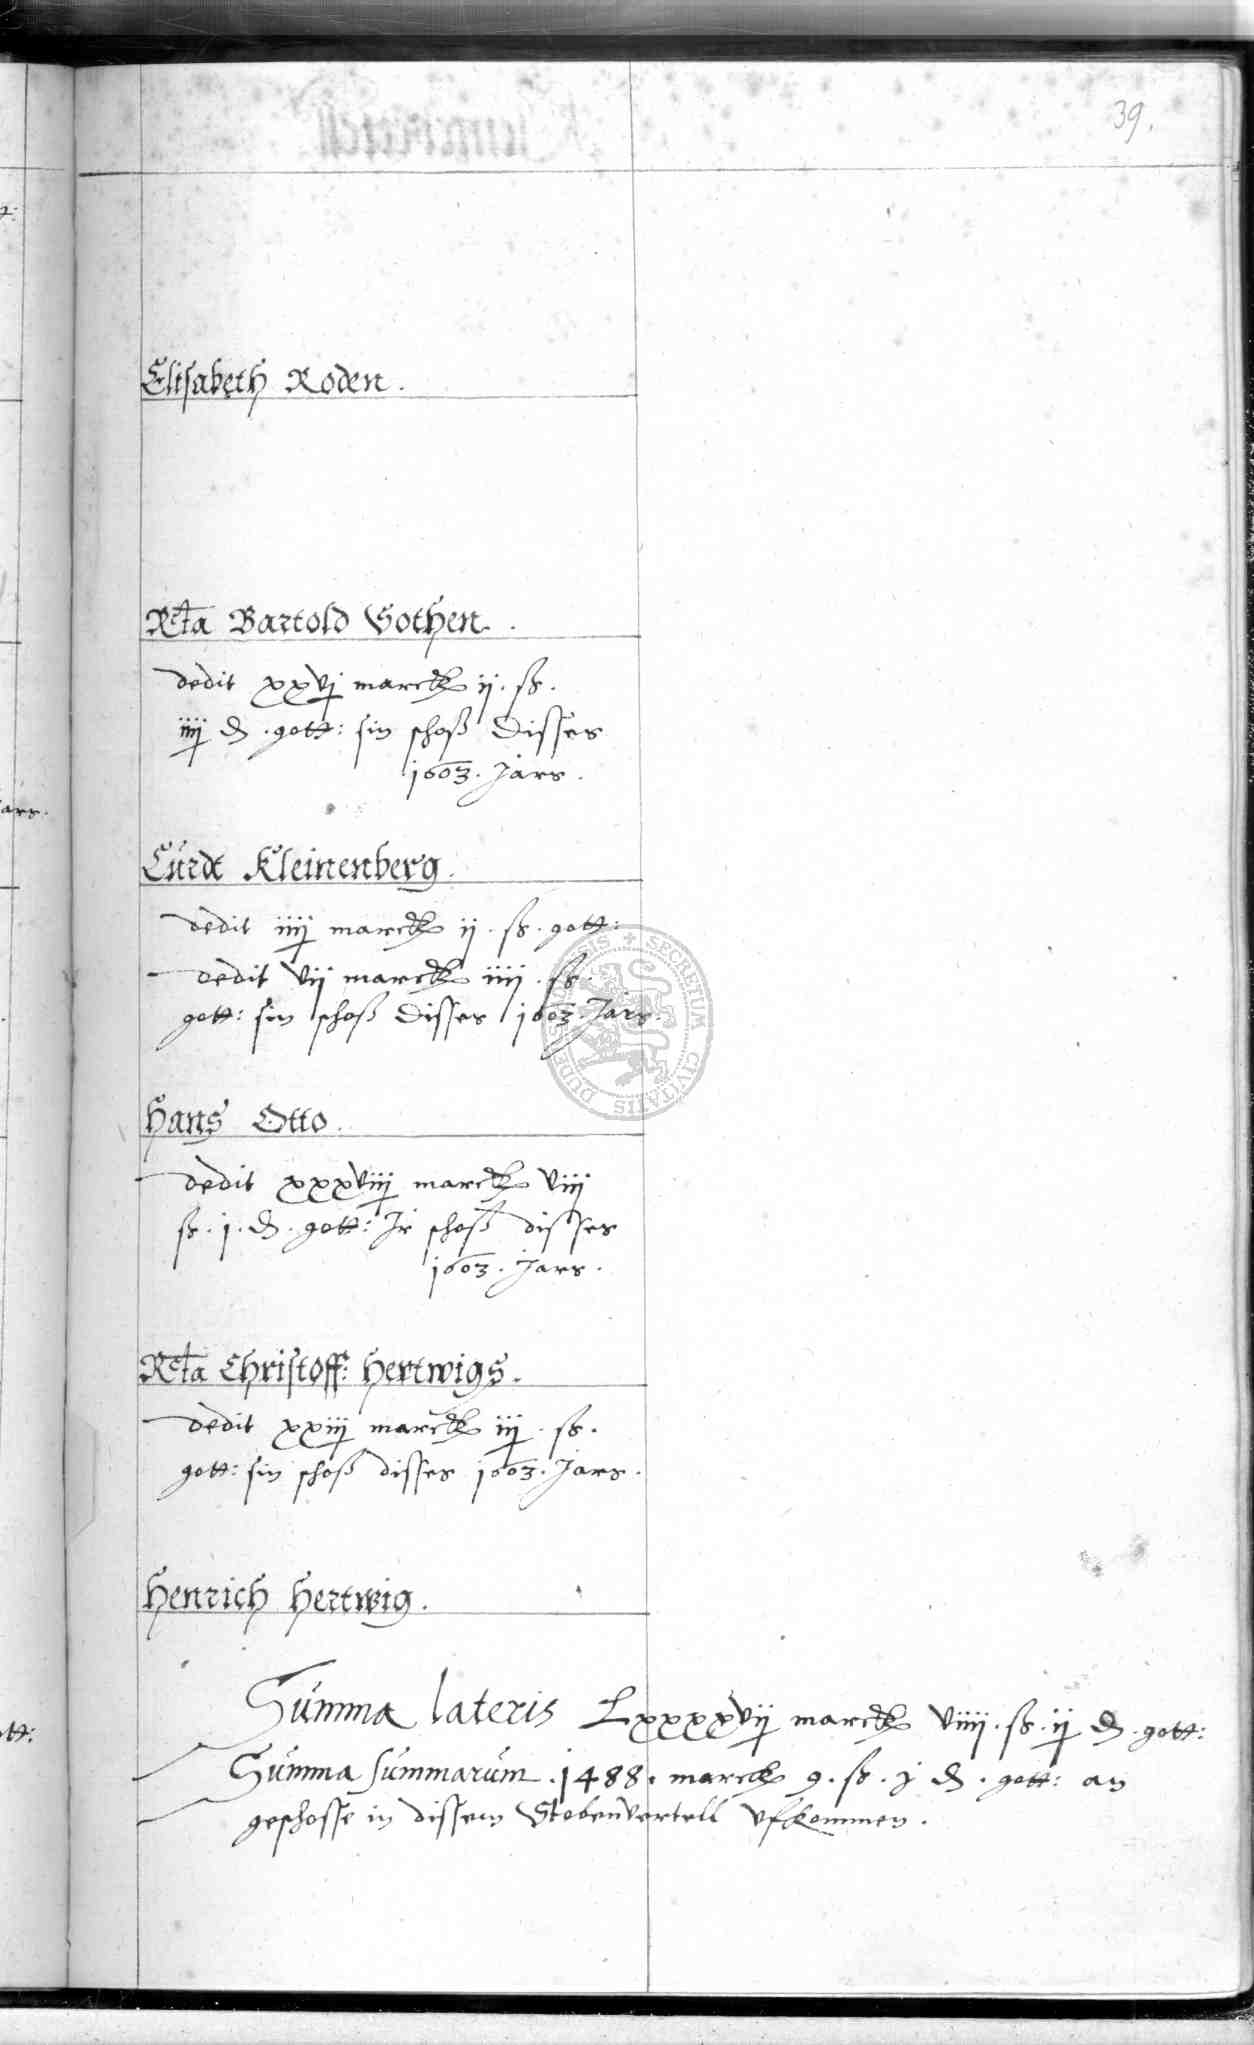 39.
Elisabeth Roden.
Rcta Bartold Gothen.
dedit xxvj marck ij. ß.
iiij ₰. gott: sin schoß disses
1603. Jars.
Curdt Kleinenberg.
dedit iiij marck ij. ß. gott:
dedit vij marck iiij. ß.
gott: sin schoß disses 1603. Jars.
Hans Otto.
dedit xxxviij marck viij
ß. j. ₰. gott: Jr schoß disses
1603. Jars.
Rcta Christoff: Hertwigs.
dedit xxiij marck iij. ß.
gott: sin schoß disses 1603. Jars.
Henrich Hertwig.
Summa lateris Lxxxxvij marck viiij. ß. ij ₰. gott:
Summa summarum. 1488. marck 9. ß. j ₰. gott: an
geschosse in dissem Stobenvertell vfkommen.
SECRETUM CIVITATIS DUDE